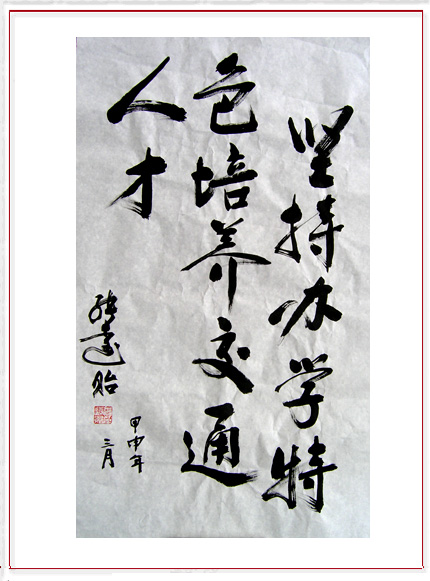 坚持办学特
色培养交通
人才
甲申年
三月